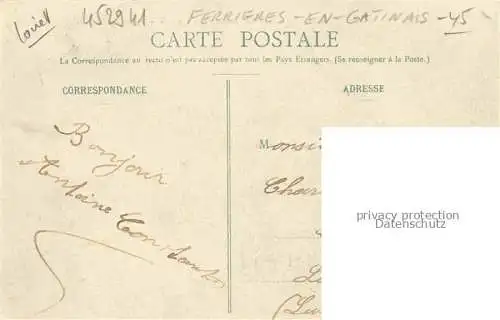 Loiret
452941... FERRIÈRES-EN-GATINAIS-45
CARTE POSTALE
La Correspondance au recto n'est pas acceptée par tous les Pays Etrangers. (Se renseigner à la Poste.)
CORRESPONDANCE
ADRESSE
Bonjour
Antoine
Monsi
Char
privacy protection
Datenschutz